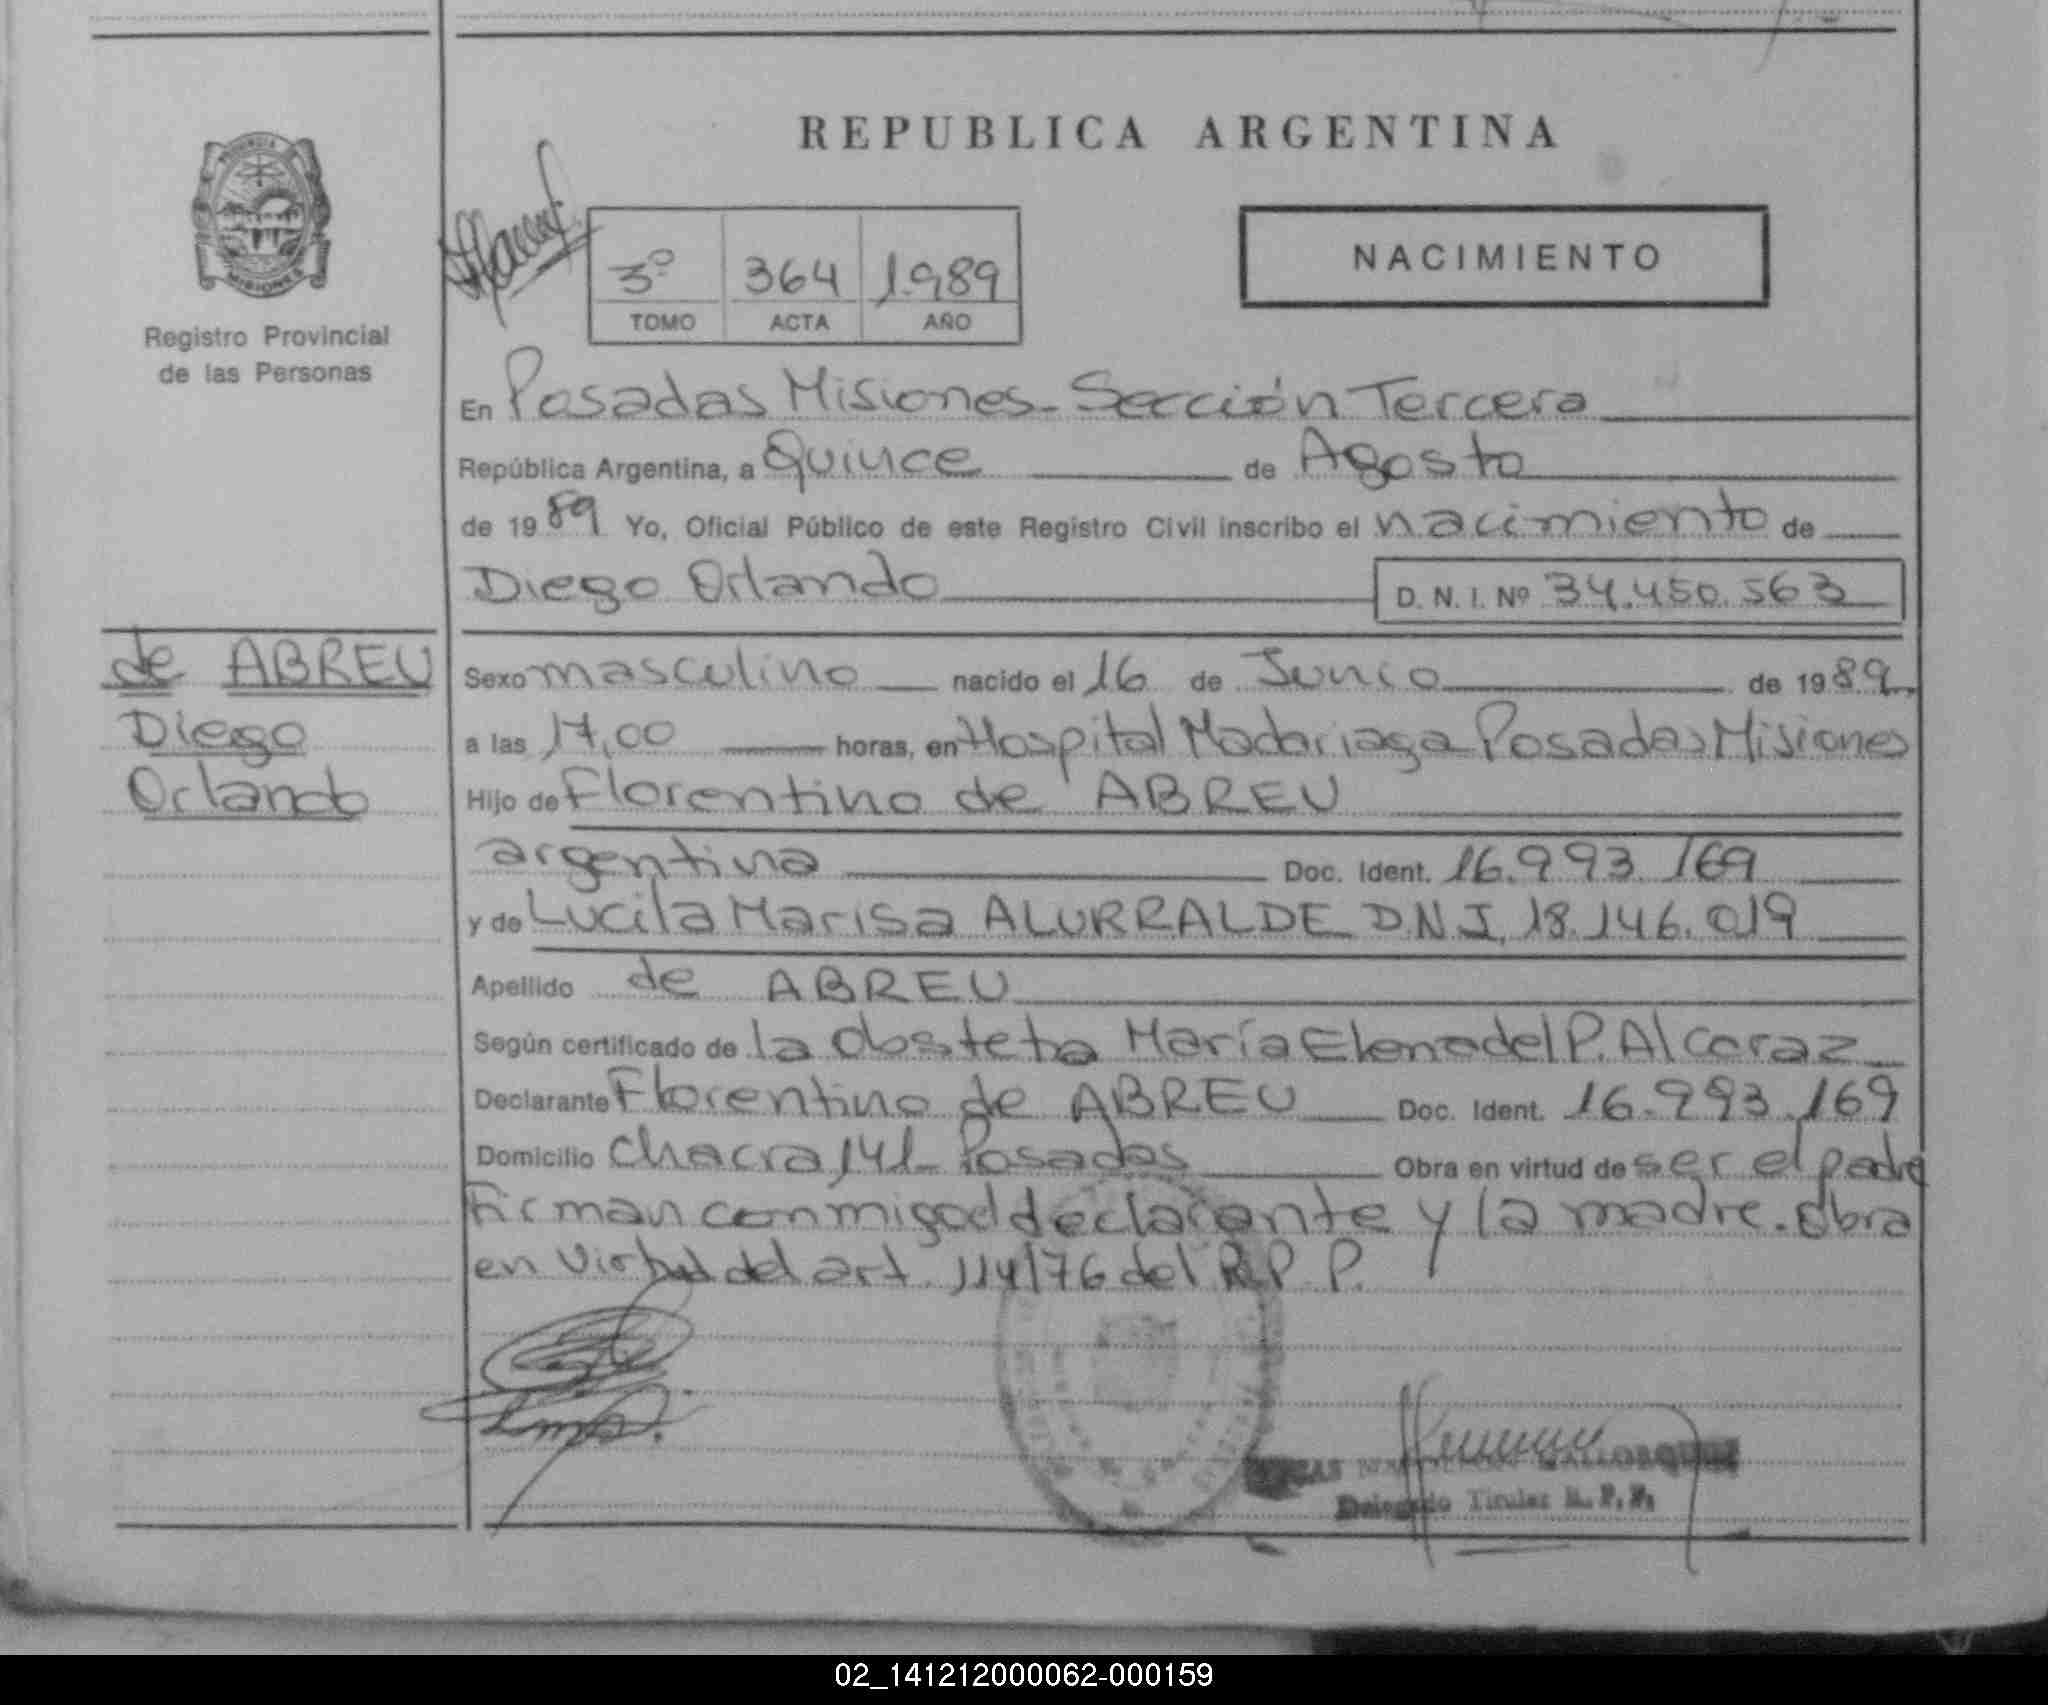 REPUBLICA ARGENTINA
NACIMIENTO
PROVINCIA
MISIONES
Registro Provincial
de las Personas
3º 364 1.989
TOMO ACTA AÑO
En Posadas Misiones - Sección Tercera
República Argentina, a Quince de Agosto
de 1989 Yo, Oficial Público de este Registro Civil inscribo el nacimiento de
Diego Orlando D. N. I. Nº 34.450.563
de ABREU
Diego
Orlando
Sexo masculino nacido el 16 de Junio de 1989.
a las 17,00 horas, en Hospital Madariaga Posadas Misiones
Hijo de Florentino de ABREU
argentina Doc. Ident. 16.993.169
y de Lucila Marisa ALURRALDE D.N.I. 18.146.019
Apellido de ABREU
Según certificado de la obsteta María Elena del P. Alcaraz
Declarante Florentino de ABREU Doc. Ident. 16.993.169
Domicilio chacra 141 - Posadas Obra en virtud de ser el padre
Firman conmigo el declarante y la madre. Obra
en virtud del art. 114/76 del R.P.P.
Delegado Titular R. P. P.
02_141212000062-000159